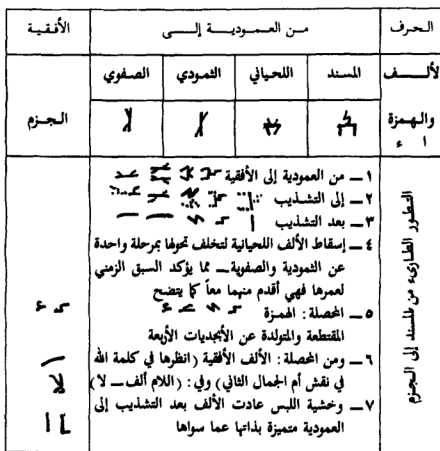 الحرف من العموديـة إلـى الأفقية
الألـف المسند اللحياني الثمودي الصفوي
والهمزة الجـزم
ا ء
التطور الطارىء من المسند إلى الجزم
١ــ من العمودية إلى الأفقية
٢ــ إلى التشذيب
٣ــ بعد التشذيب
٤ ــ إسقاط الألف اللحيانية لتخلف تحولها بمرحلة واحدة
عن الثمودية والصفوية ــ مما يؤكد السبق الزمني
لعمرها فهي أقدم منهما معاً كما يتضح
٥ــ المحصلة: الهمزة
المقتطعة والمتولدة عن الأبجديات الأربعة
٦ــ ومن المحصلة: الألف الأفقية (انظرها في كلمة الله
في نقش أم الجمال الثاني) وفي: (اللام ألف ــ لا)
٧ــ وخشية اللبس عادت الألف بعد التشذيب إلى
العمودية متميزة بذاتها عما سواها